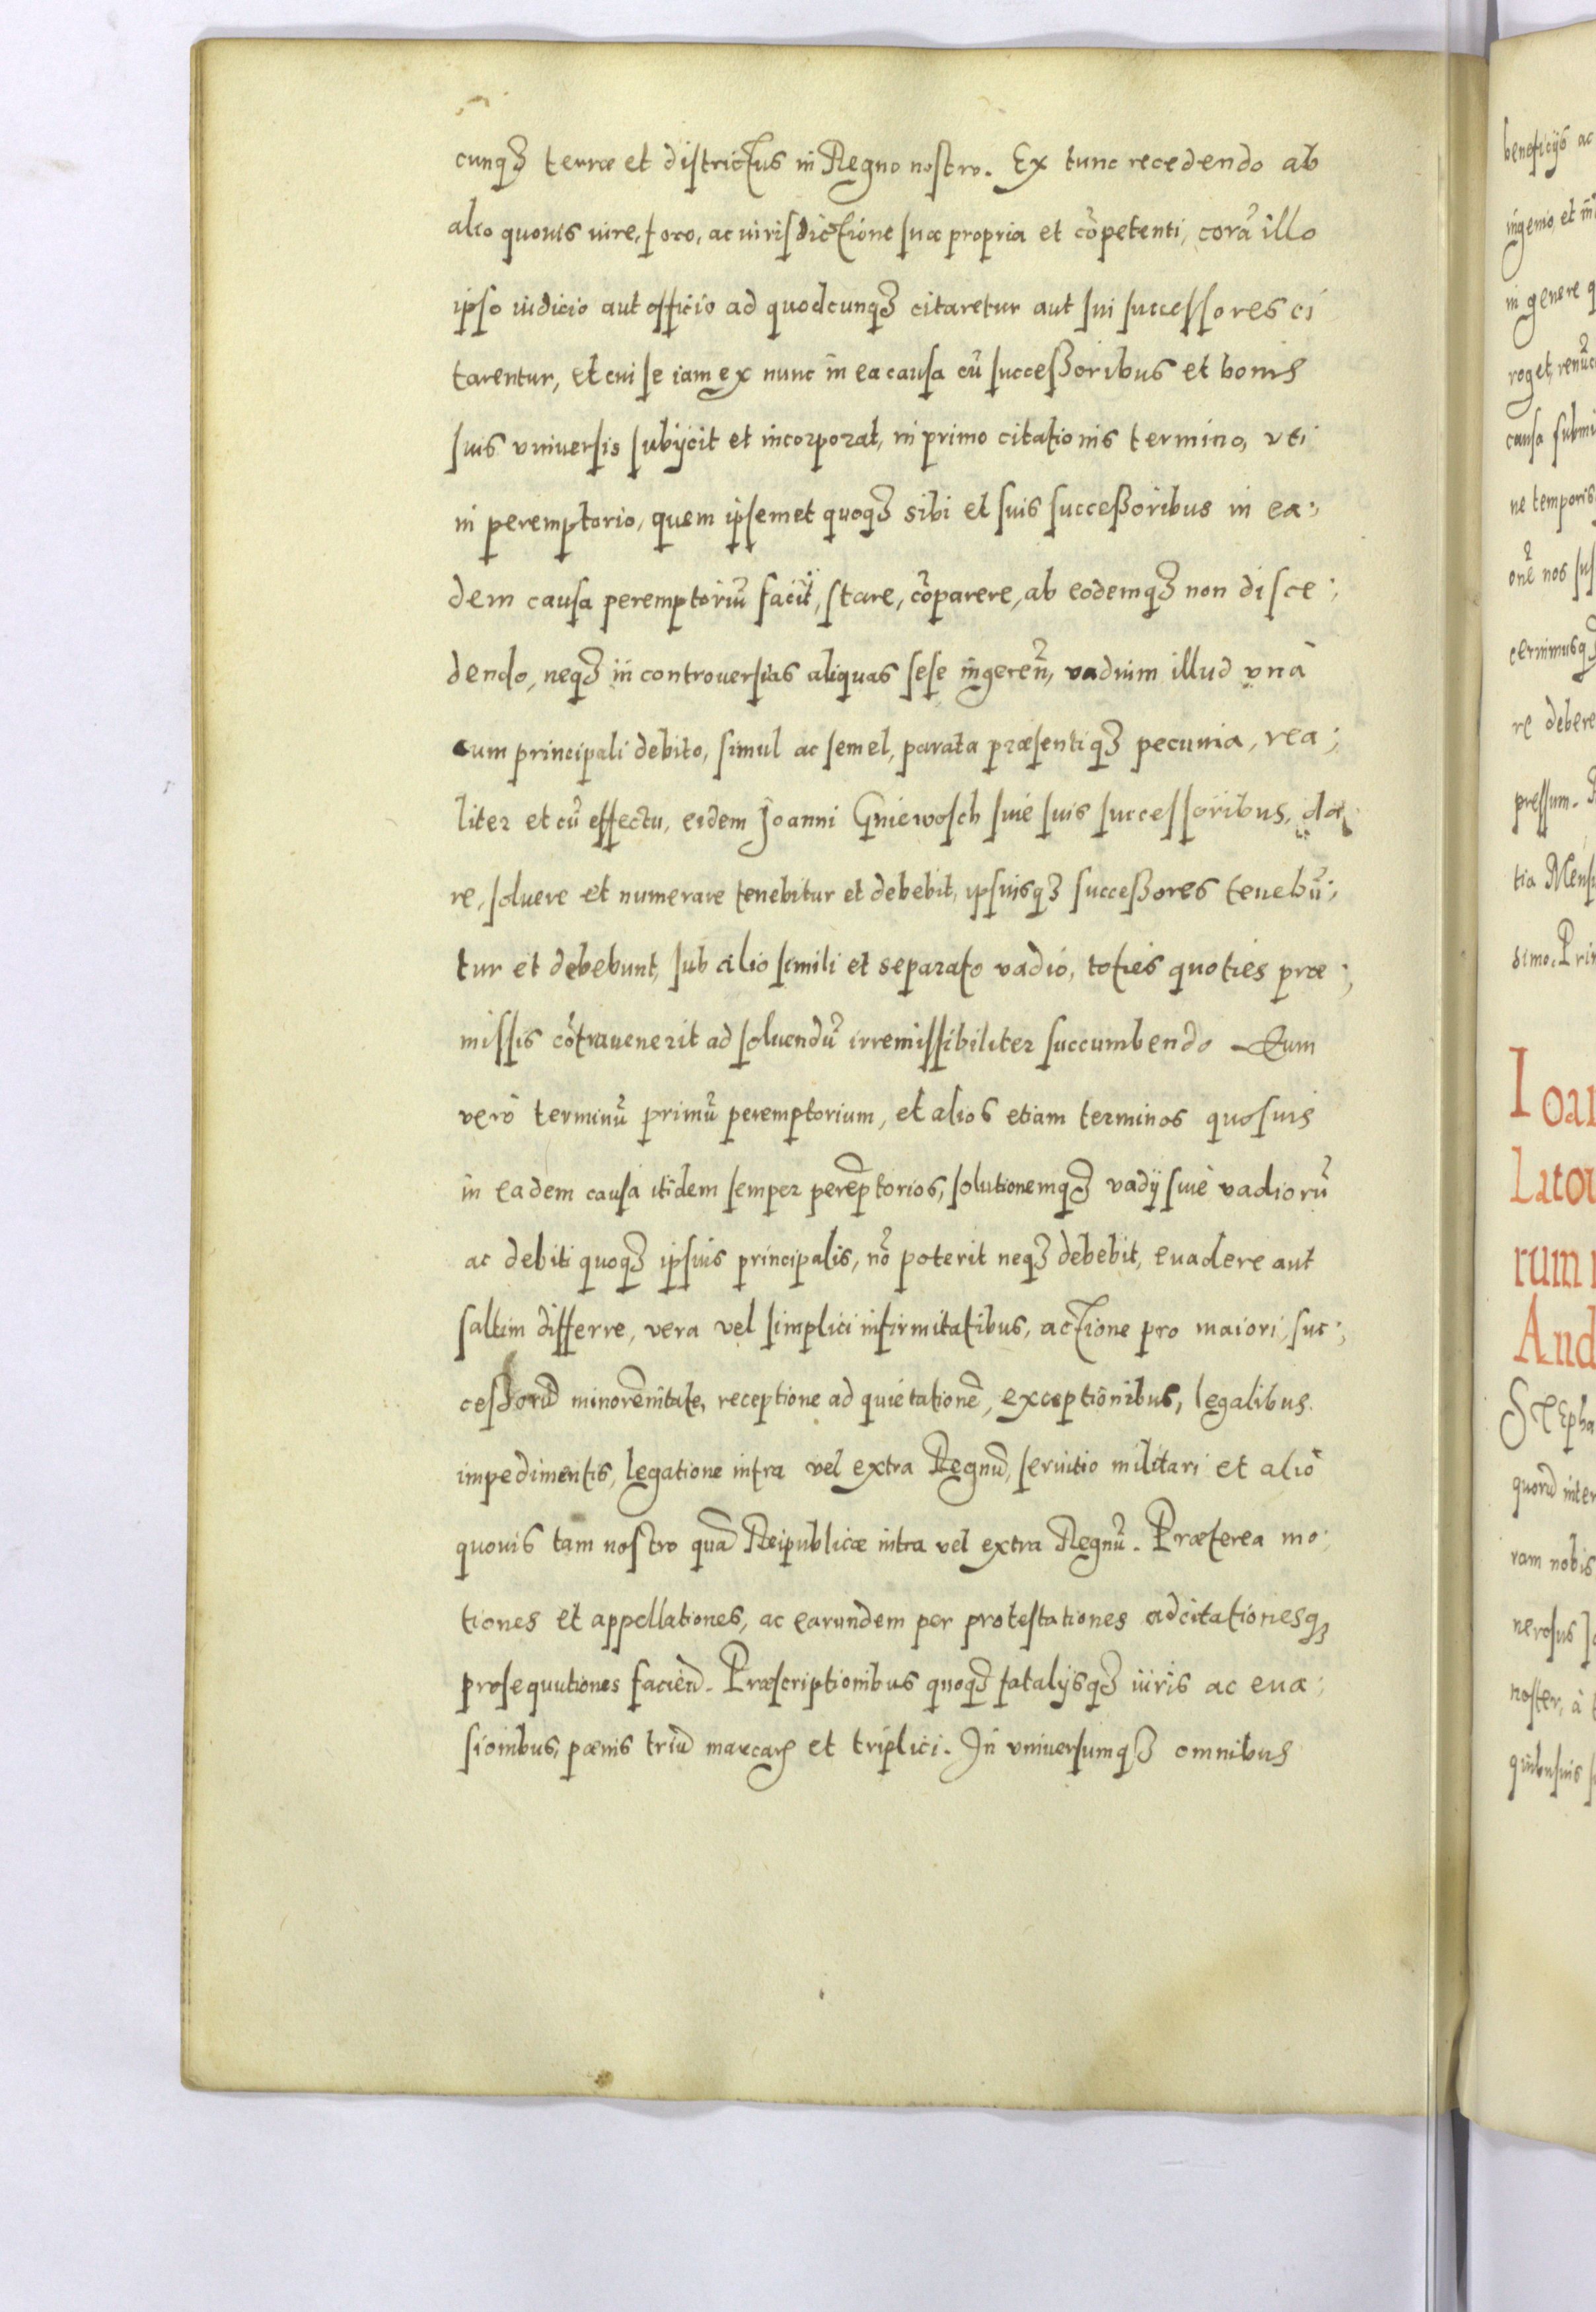 cunqȝ terræ et districtus in Regno nostro. Ex tunc recedendo ab
alio quouis iure, foro, ac iurisdictione suæ propria et cõpetenti, corã illo
ipso iudicio aut officio ad quodcunqȝ citaretur aut sui successores ci
tarentur, et cui se iam ex nunc in ea causa cũ succeßoribus et bonis
suis vniuersis subijcit et incorporat, in primo citationis termino, vti
in peremptorio, quem ipsemet quoqȝ sibi et suis succeßoribus in ea;
dem causa peremptoriũ facit, stare, cõparere, ab eodemqȝ non disce;
dendo, neqȝ in controuersias aliquas sese ingereñ, vadium illud vnà
cum principali debito, simul ac semel, parata præsentiqȝ pecunia, rea;
liter et cũ effectu, eidem Joanni Gniewosch siue suis successoribus, da
re, soluere et numerare tenebitur et debebit, ipsiusqȝ succeßores tenebũ;
tur et debebunt, sub alio simili et separato vadio, toties quoties præ;
missis cõtrauenerit ad soluendũ irremissibiliter succumbendo Quem
verò terminũ primũ peremptorium, et alios etiam terminos quosuis
in eadem causa itidem semper perẽptorios, solutionemqȝ vadij siue vadiorũ
ac debiti quoqȝ ipsius principalis, nõ poterit neqȝ debebit, euadere aut
saltim differre, vera vel simplici infirmitatibus, actione pro maiori, suc;
ceßorũ minorẽnitate, receptione ad quietationẽ, exceptionibus, legalibus
impedimentis, legatione intra vel extra Regnũ, seruitio militari et alio
quouis tam nostro quã Reipublicæ intra vel extra Regnũ. Præterea mo;
tiones et appellationes, ac earundem per protestationes adcitationesqȝ
prosequutiones facieñ. Præscriptionibus quoqȝ fatalijsqȝ iuris ac eua;
sionibus, pœnis triũ marcarꝝ et triplici. In vniuersumqȝ omnibus
beneficijs ac
ingenio, et
in genere
roget,
causa
ne temporis
onẽ nos
cernimusqȝ
re debere
pressum.
tia
simo.
Ioan
Lato
rum
And
Stepha
quorũ inter
ram nobis
nerosus
noster, à
quibusuis